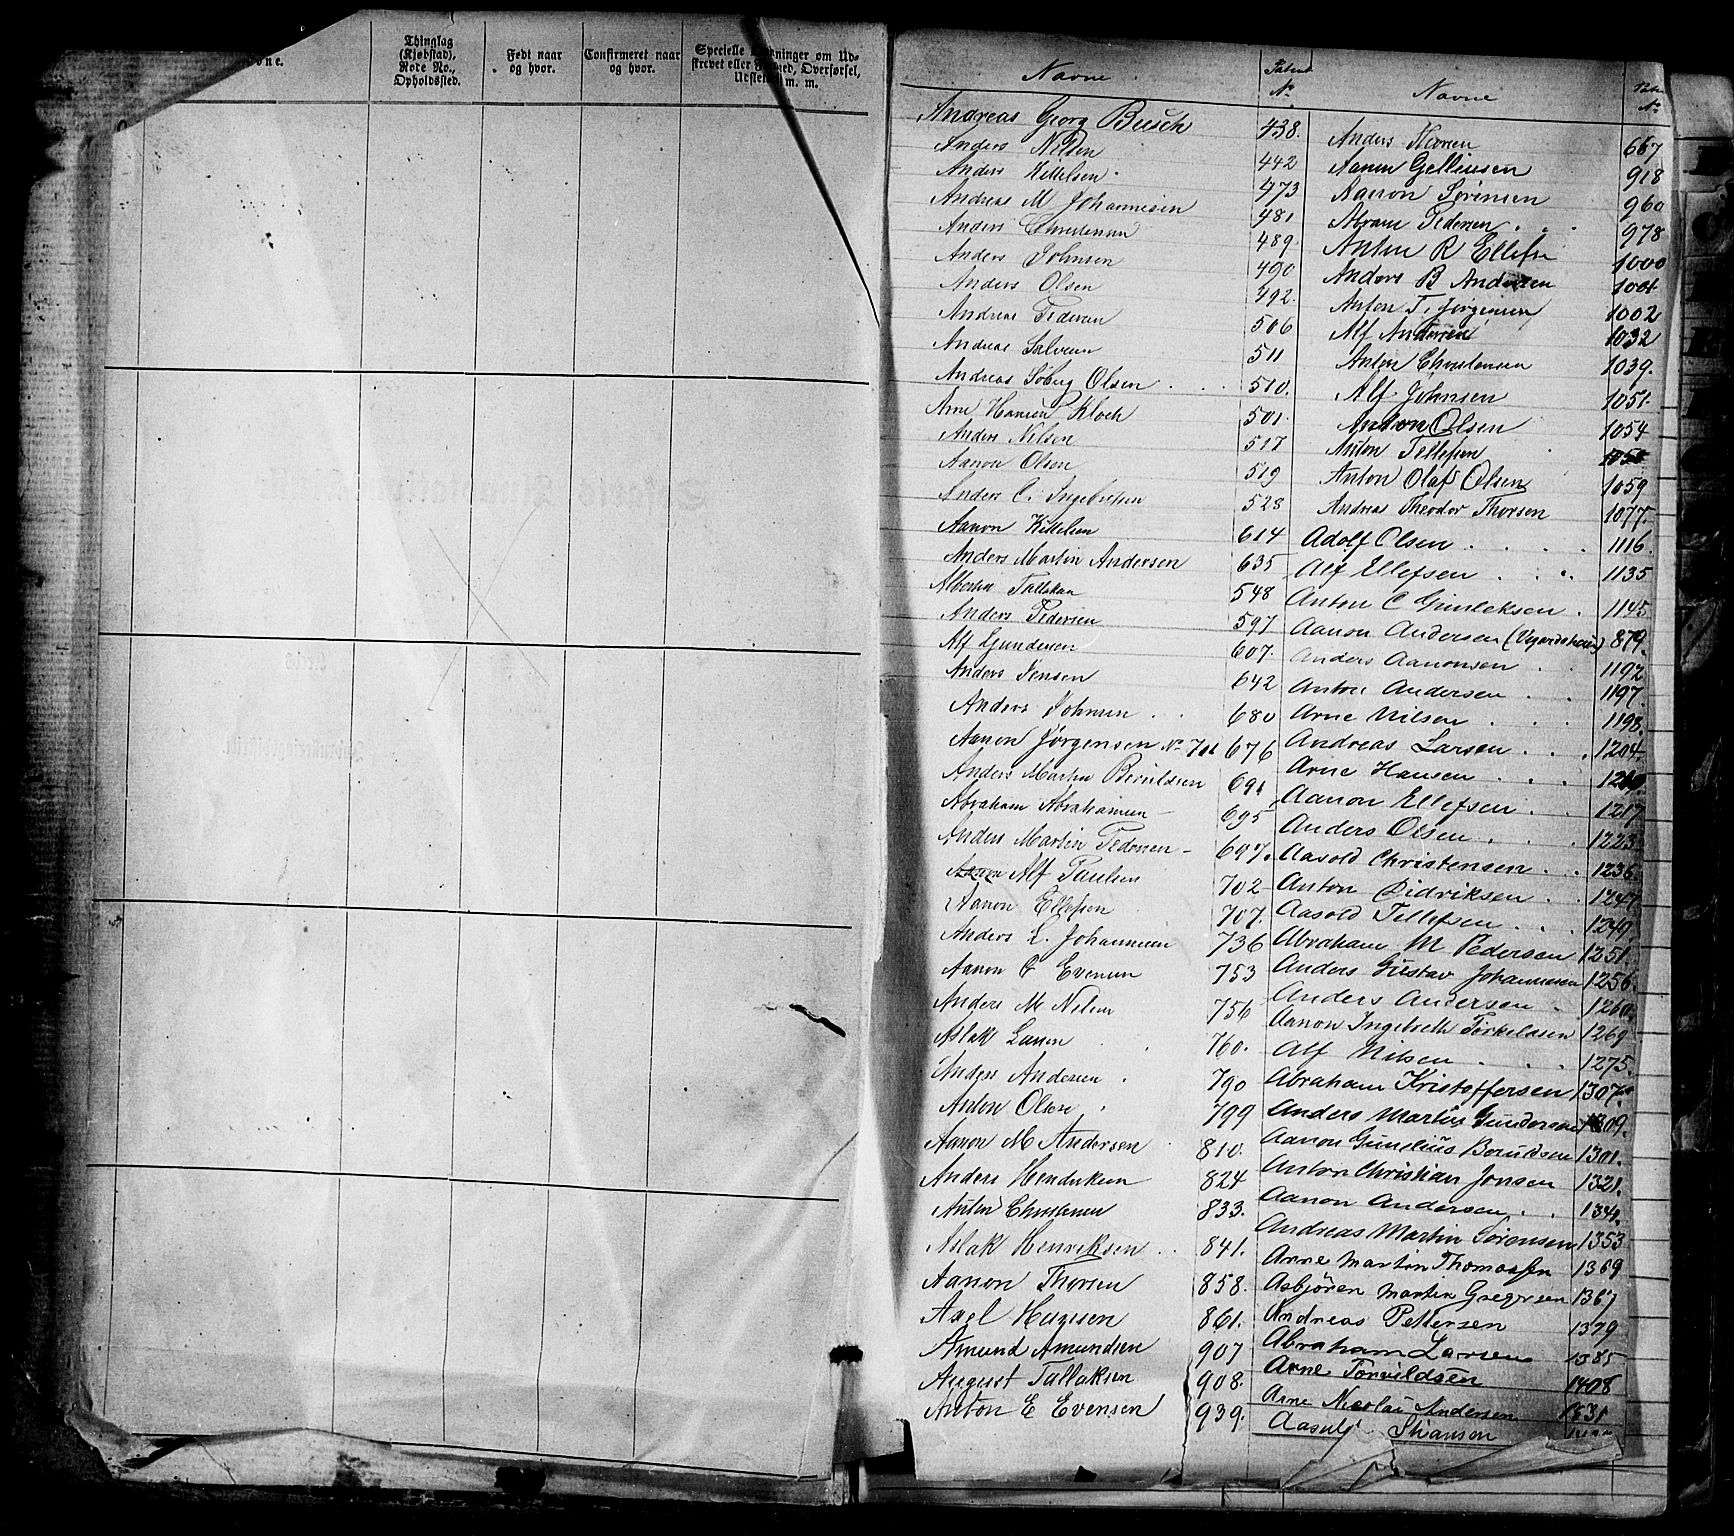 Thinglag
(Kjøbstad),
Rode No.,
Opholdssted.
Født naar
og hvor.
Confirmeret naar
og hvor.
Navne
Patent
No
Andreas Georg Busch 438.
Anders Nilsen 442
Anders Kittelsen 473
Andreas M Johannesen 481
Anders Christensen 489.
Anders Johnsen 490
Anders Olsen 492.
Andreas Pedersen 506
Andreas 511
Andreas Soberg Olsen 510.
Arne Hansen Kloch 501.
Anders Nilsen 517
Aanon Olsen 519
Anders C. Ingebretsen 528
Aanon Kittelsen 614
Anders Martin Andersen 635
Tallaksen 548
Anders Pedersen 597
Alf Gundersen 607.
Anders Jensen 642
Anders Johnsen 680
Aanon Jørgensen No 701 676
Anders Martin Beruldsen 691
Abraham Abrahamsen 695
Anders Martin Pedersen 697.
Alf Paulsen 702
Aanon Ellefsen 707.
Anders L. Johannesen 736
Aanon G Evensen 753
Anders M Nilsen 756
Aslak Larsen 760.
Anders Andersen 790
Anders Olsen 799
Aanon M Andersen 810.
Anders Hendriksen 824
Anton Christensen 833.
Aslak Henriksen 841.
Aanon Thorsen 858.
Axel Hansen 861.
Amund Amundsen 907
August Tallaksen 908.
Anton E Evensen 939.
Navne
No
Anders 667
Aanon Gelliusen 918
Aanon Sørensen 960
Abram Pedersen 978
Anton R Ellefsen 1000
Anders B Andersen 1001
Anton T. Jørgensen 1002
Alf Andersen 1032
Anton Christensen 1039.
Alf Johnsen 1051.
Anton Olsen 1054
Anton Tellefsen
Anton Olaf Olsen 1059
Andreas Theodor Thorsen 1077.
Adolf Olsen 1116.
Alf Ellefsen 1135
Anton C Gunleksen 1145.
Aanon Andersen (Vegardshei) 879.
Anders Aanonsen 1192
Anton Andersen 1197.
Arne Nilsen 1198.
Andreas Larsen 1204.
Arne Hansen
Aanon Ellefsen 1217
Anders Olsen 1223
Aasold Christensen 1236.
Anton Didriksen 1247
Aasold Tellefsen 1249
Abraham M Pedersen 1251.
Anders Gustav Johannesen 1256.
Anders Andersen 1260.
Aanon Ingebreth Torkelssen 1269
Alf Nilsen 1275.
Abraham Kristoffersen 1307.
Anders Martin Gundersen 1309.
Aanon Gunelius Beruldsen 1301.
Anton Christian Jonsen 1321.
Aanon Andersen 1341.
Andreas Martin Sørensen 1353
Arne Martin Thomassen 1369
Asbjøren Martin Gregersen 1367
Andreas Pettersen 1379
Abraham Larsen 1385
Arne Torvildsen 1408
Arne Nicolai Andersen 1531
Aasulf